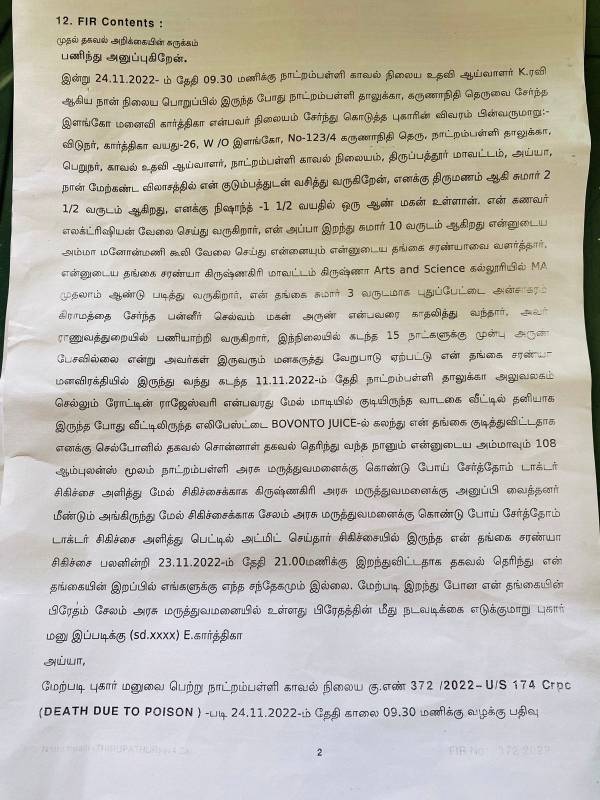 12. FIR Contents :
முதல் தகவல் அறிக்கையின் சுருக்கம்
பணிந்து அனுப்புகிறேன்.
இன்று 24.11.2022- ம் தேதி 09.30 மணிக்கு நாட்றம்பள்ளி காவல் நிலைய உதவி ஆய்வாளர் K.ரவி
ஆகிய நான் நிலைய பொறுப்பில் இருந்த போது நாட்றம்பள்ளி தாலுக்கா, கருணாநிதி தெருவை சேர்ந்த
இளங்கோ மனைவி கார்த்திகா என்பவர் நிலையம் சேர்ந்து கொடுத்த புகாரின் விவரம் பின்வருமாறு:-
விடுநர், கார்த்திகா வயது-26, W /O இளங்கோ, No-123/4 கருணாநிதி தெரு, நாட்றம்பள்ளி தாலுக்கா,
பெறுநர், காவல் உதவி ஆய்வாளர், நாட்றம்பள்ளி காவல் நிலையம், திருப்பத்தூர் மாவட்டம், அய்யா,
நான் மேற்கண்ட விலாசத்தில் என் குடும்பத்துடன் வசித்து வருகிறேன், எனக்கு திருமணம் ஆகி சுமார் 2
1/2 வருடம் ஆகிறது, எனக்கு நிஷாந்த் -1 1/2 வயதில் ஒரு ஆண் மகன் உள்ளான். என் கணவர்
எலக்ட்ரிஷியன் வேலை செய்து வருகிறார், என் அப்பா இறந்து சுமார் 10 வருடம் ஆகிறது என்னுடைய
அம்மா மனோன்மணி கூலி வேலை செய்து என்னையும் என்னுடைய தங்கை சரண்யாவை வளர்த்தார்.
என்னுடைய தங்கை சரண்யா கிருஷ்ணகிரி மாவட்டம் கிருஷ்ணா Arts and Science கல்லூரியில் MA
முதலாம் ஆண்டு படித்து வருகிறார், என் தங்கை சுமார் 3 வருடமாக புதுப்பேட்டை அன்சாகரம்
கிராமத்தை சேர்ந்த பன்னீர் செல்வம் மகன் அருண் என்பவரை காதலித்து வந்தார், அவர்
ராணுவத்துறையில் பணியாற்றி வருகிறார், இந்நிலையில் கடந்த 15 நாட்களுக்கு முன்பு அருண்
பேசவில்லை என்று அவர்கள் இருவரும் மனகருத்து வேறுபாடு ஏற்பட்டு என் தங்கை சரண்யா
மனவிரக்தியில் இருந்து வந்து கடந்த 11.11.2022-ம் தேதி நாட்றம்பள்ளி தாலுக்கா அலுவலகம்
செல்லும் ரோட்டின் ராஜேஸ்வரி என்பவரது மேல் மாடியில் குடியிருந்த வாடகை வீட்டில் தனியாக
இருந்த போது வீட்டிலிருந்த எலிபேஸ்ட்டை BOVONTO JUICE-ல் கலந்து என் தங்கை குடித்துவிட்டதாக
எனக்கு செல்போனில் தகவல் சொன்னாள் தகவல் தெரிந்து வந்த நானும் என்னுடைய அம்மாவும் 108
ஆம்புலன்ஸ் மூலம் நாட்றம்பள்ளி அரசு மருத்துவமனைக்கு கொண்டு போய் சேர்த்தோம் டாக்டர்
சிகிச்சை அளித்து மேல் சிகிச்சைக்காக கிருஷ்ணகிரி அரசு மருத்துவமனைக்கு அனுப்பி வைத்தனர்
மீண்டும் அங்கிருந்து மேல் சிகிச்சைக்காக சேலம் அரசு மருத்துவமனைக்கு கொண்டு போய் சேர்த்தோம்
டாக்டர் சிகிச்சை அளித்து பெட்டில் அட்மிட் செய்தார் சிகிச்சையில் இருந்த என் தங்கை சரண்யா
சிகிச்சை பலனின்றி 23.11.2022-ம் தேதி 21.00மணிக்கு இறந்துவிட்டதாக தகவல் தெரிந்து என்
தங்கையின் இறப்பில் எங்களுக்கு எந்த சந்தேகமும் இல்லை. மேற்படி இறந்து போன என் தங்கையின்
பிரேதம் சேலம் அரசு மருத்துவமனையில் உள்ளது பிரேதத்தின் மீது நடவடிக்கை எடுக்குமாறு புகார்
மனு இப்படிக்கு (sd.xxxx) E.கார்த்திகா
அய்யா,
மேற்படி புகார் மனுவை பெற்று நாட்றம்பள்ளி காவல் நிலைய கு.எண் 372 /2022– U/S 174 Crpc
(DEATH DUE TO POISON ) -படி 24.11.2022-ம் தேதி காலை 09.30 மணிக்கு வழக்கு பதிவு
2
FIR No 372 2022